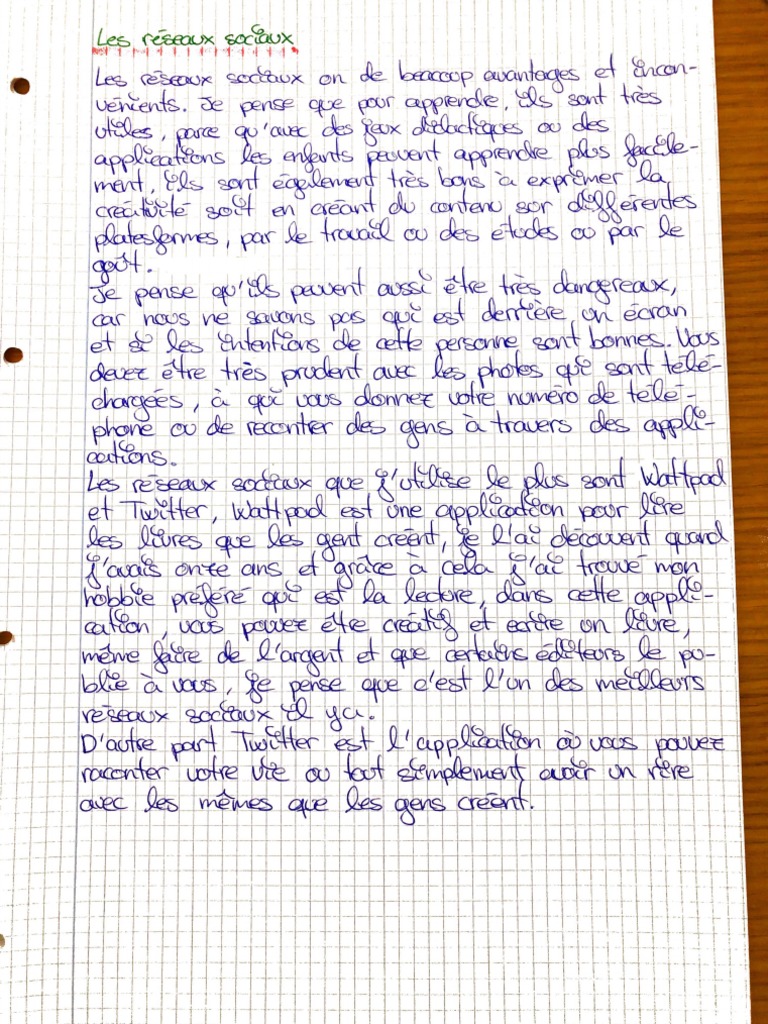 Les réseaux sociaux
Les réseaux sociaux on de beacoup avantages et incon-
vénients. Je pense que pour apprendre, ils sont très
utiles, parce qu'avec des jeux didactiques ou des
applications les enfants peuvent apprendre plus facile-
ment, ils sont également très bons à exprimer la
creátivité soit en créant du contenu sor différentes
platesformes, par le travail ou des études ou par le
goût.
Je pense qu'ils peuvent aussi être très dangereaux,
car nous ne savons pas qui est derrière un écran
et si les intentions de cette personne sont bonnes. Vous
devez être très prudent avec les photos que sont télé-
chargées, à qui vous donnez votre numéro de télé-
phone ou de recontrer des gens à travers des appli-
cations.
Les réseaux sociaux que j'utilise le plus sont Wattpad
et Twitter, Wattpad est une application pour lire
les livres que les gent créent, je l'ai découvent quand
j'avais onze ans et grâce à cela j'ai trouvé mon
hobbie préféré qui est la lecture, dans cette appli-
cation, vous pouvez être créatif et ecrire un livre,
même faire de l'argent et que certains éditeurs le pu-
blie à vous, je pense que c'est l'un des meilleurs
réseaux sociaux il ya.
D'autre part Twitter est l'application où vous pouvez
raconter votre vie ou tout simplement avoir un rire
avec les mêmes que les gens créent.